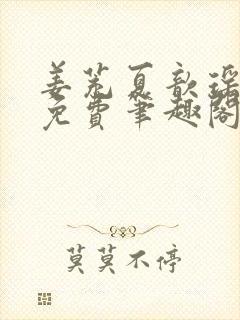 姜芜夏歆瑶
免费笔趣阁
莫莫不停